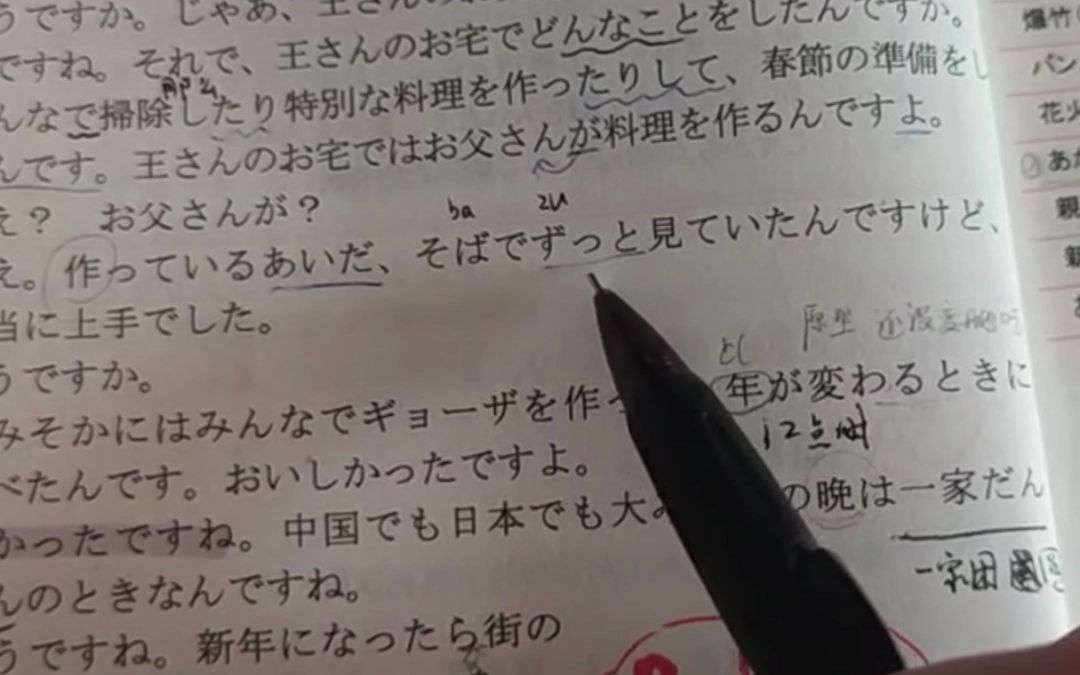 うですか。じゃあ、王さんのお
ですね。それで、王さんのお宅でどんなことをしたんですか。
んなで掃除したり特別な料理を作ったりして、春節の準備をし
んです。王さんのお宅ではお父さんが料理を作るんですよ。
え? お父さんが?
ba zu
え。作っているあいだ、そばでずっと見ていたんですけど、
当に上手でした。
原型
うですか。
とし
みそかにはみんなでギョーザを作っ 年が変わるときに
12点时
べたんです。おいしかったですよ。
かったですね。中国でも日本でも大 の晩は一家だん
一家团圆
んのときなんですね。
うですね。新年になったら街の
爆竹
パン
花火
あ
親